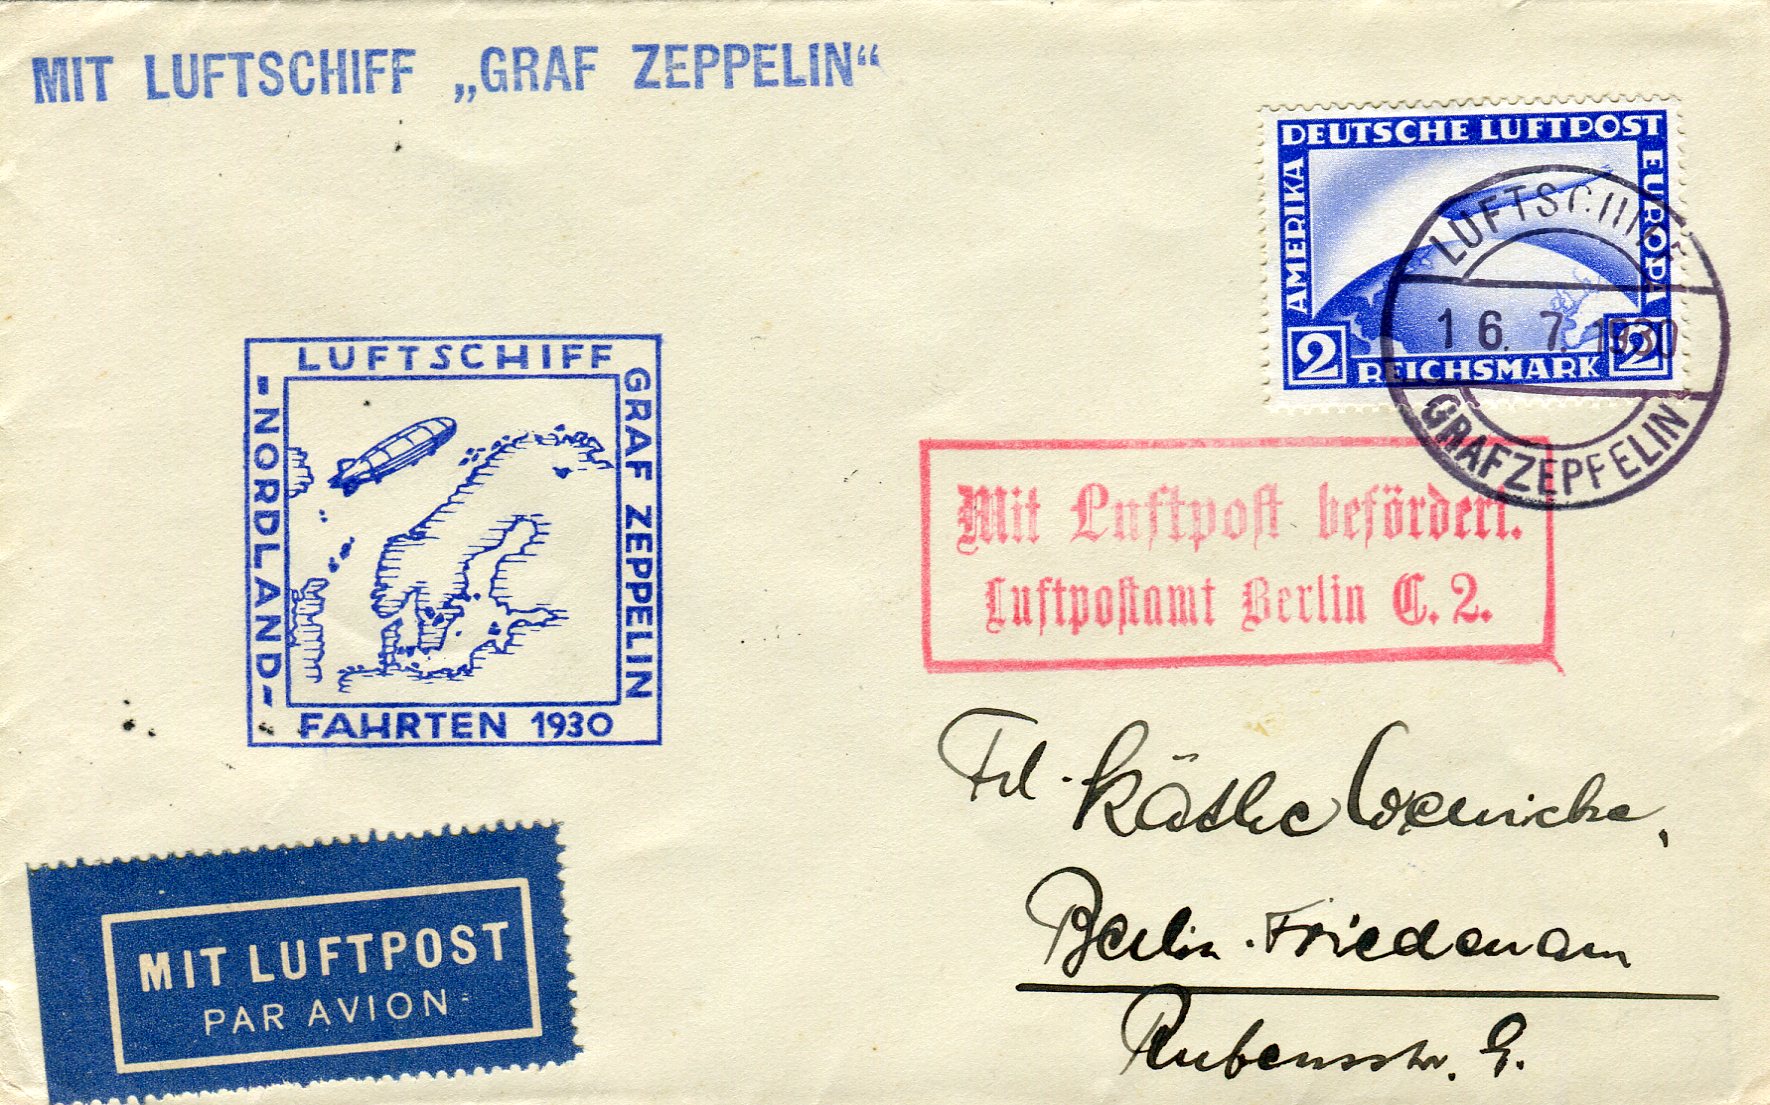 MIT LUFTSCHIFF „GRAF ZEPPELIN“
DEUTSCHE LUFTPOST
AMERIKA
EUROPA
2
REICHSMARK
2
LUFTSCHIFF
16. 7. 1930
GRAF ZEPPELIN
LUFTSCHIFF
GRAF ZEPPELIN
-NORDLAND-
FAHRTEN 1930
Mit Luftpost befördert.
Luftpostamt Berlin C. 2.
Frl. Käthe Wernicke,
Berlin-Friedenau
Rubensstr. 9.
MIT LUFTPOST
PAR AVION